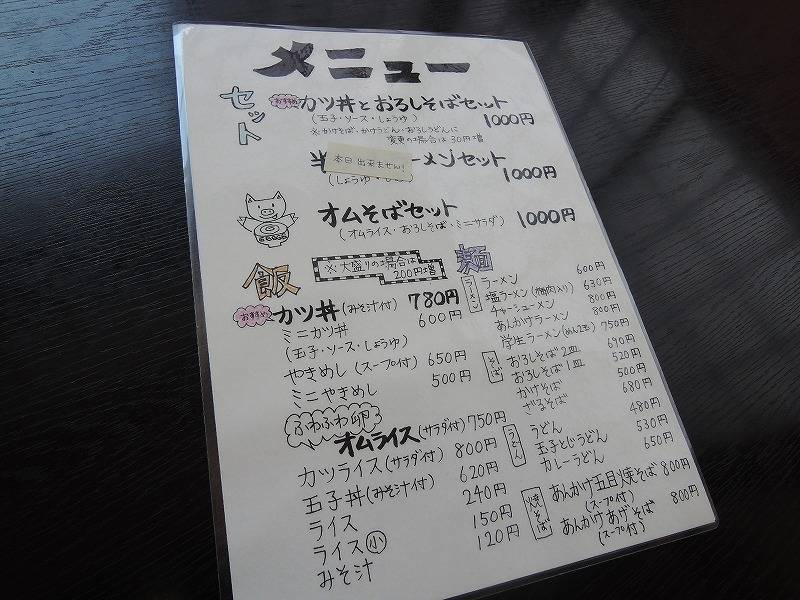 メニュー
セット
おすすめ カツ丼とおろしそばセット
(玉子・ソース・しょうゆ) 1000円
※かけそば・かけうどん・おろしうどんに
変更の場合は30円増
半 ーメンセット
本日出来ません!
(しょうゆ・ 1000円
オムそばセット 1000円
(オムライス・おろしそば・ミニサラダ)
飯
※大盛りの場合は
200円増
おすすめ カツ丼(みそ汁付) 780円
ミニカツ丼 600円
(玉子・ソース・しょうゆ)
やきめし(スープ付) 650円
ミニやきめし 500円
ふわふわ卵
オムライス(サラダ付) 750円
カツライス(サラダ付) 800円
玉子丼(みそ汁付) 620円
ライス 240円
ライス小 150円
みそ汁 120円
麺
ラーメン
ラーメン 600円
塩ラーメン(梅肉入り) 630円
チャーシューメン 800円
あんかけラーメン 800円
学生ラーメン(めん2玉) 750円
そば
おろしそば2皿 690円
おろしそば1皿 520円
かけそば 500円
ざるそば 680円
うどん
うどん 480円
玉子とじうどん 530円
カレーうどん 650円
焼そば
あんかけ五目焼そば 800円
(スープ付)
あんかけあげそば 800円
(スープ付)